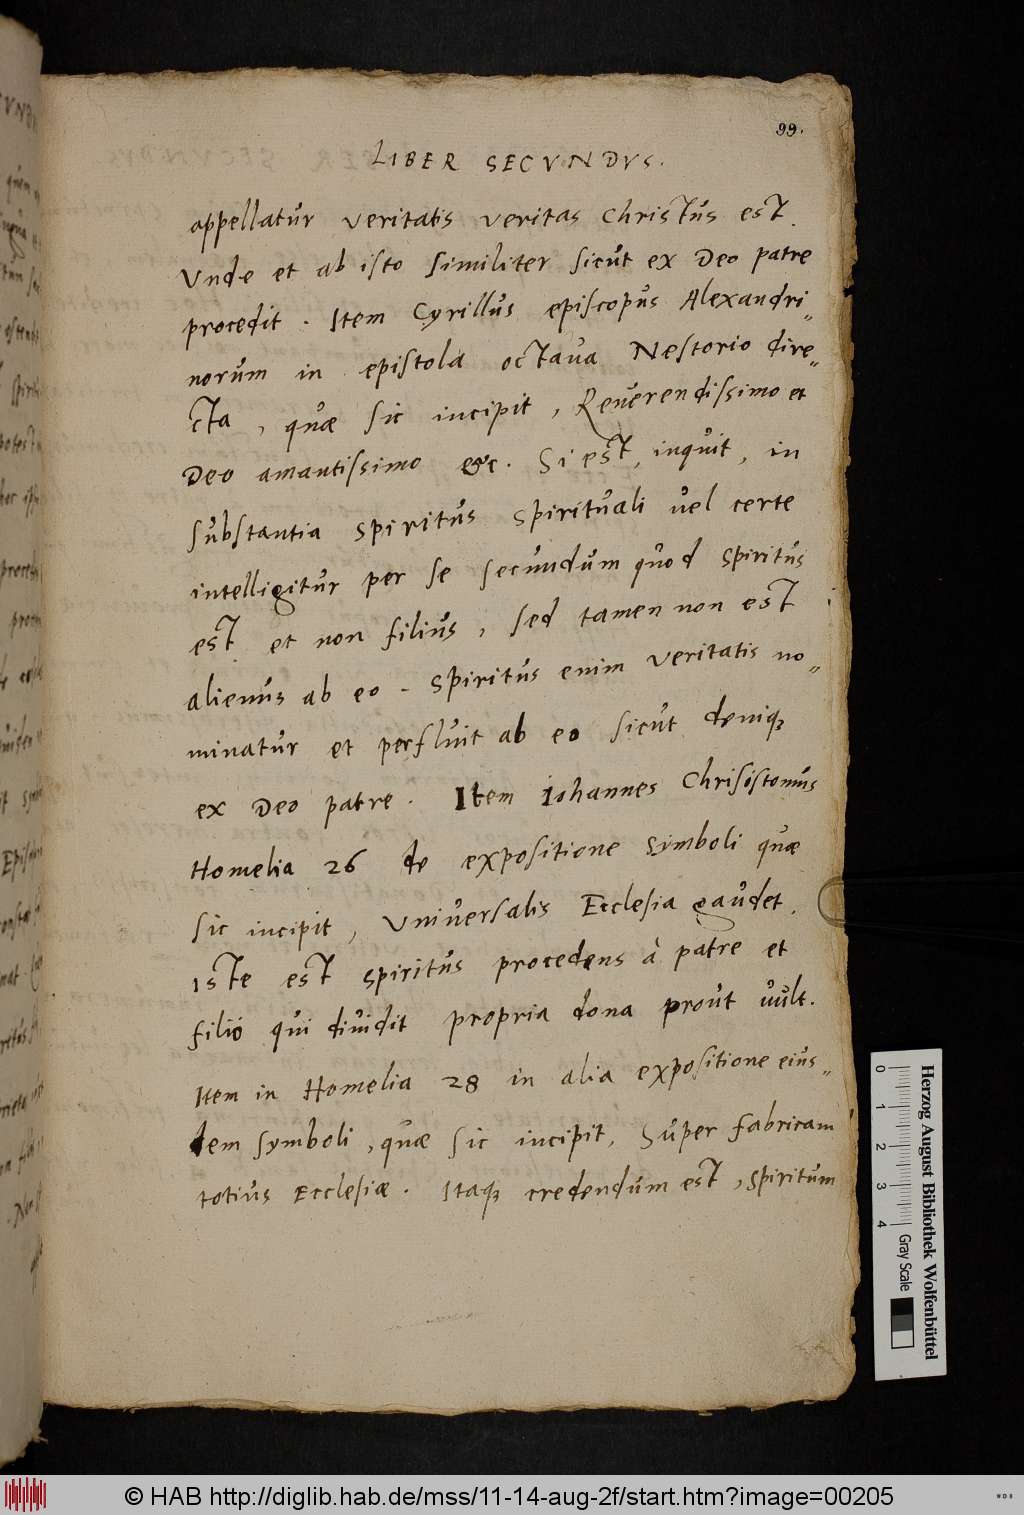 99.
LIBER SECVNDVS.
appellatur veritatis veritas Christus est.
Vnde et ab isto similiter sicut ex Deo patre
procedit. Item Cyrillus episcopus Alexandri„
norum in epistola octava Nestorio dire„
cta, quæ sic incipit, Reuerendissimo et
Deo amantissimo &c. Si est, inquit, in
substantia spiritus spirituali vel certe
intelligitur per se secundum quod spiritus
est et non filius, sed tamen non est
alienus ab eo. Spiritus enim veritatis no„
minatur et perfluit ab eo sicut deniq3
ex Deo patre. Item Iohannes Chrisistomus
Homelia 26 de expositione symboli quæ
sic incipit, Vniversalis Ecclesia gaudet.
Iste est spiritus procedens à patre et
filio qui diuidit propria dona prout vult.
Item in Homelia 28 in alia expositione eius„
dem symboli, quæ sic incipit, Super fabricam
totius Ecclesiæ. Itaq3 credendum est, spiritum
0 1 2 3 4
Gray Scale
Herzog August Bibliothek Wolfenbüttel
© HAB http://diglib.hab.de/mss/11-14-aug-2f/start.htm?image=00205